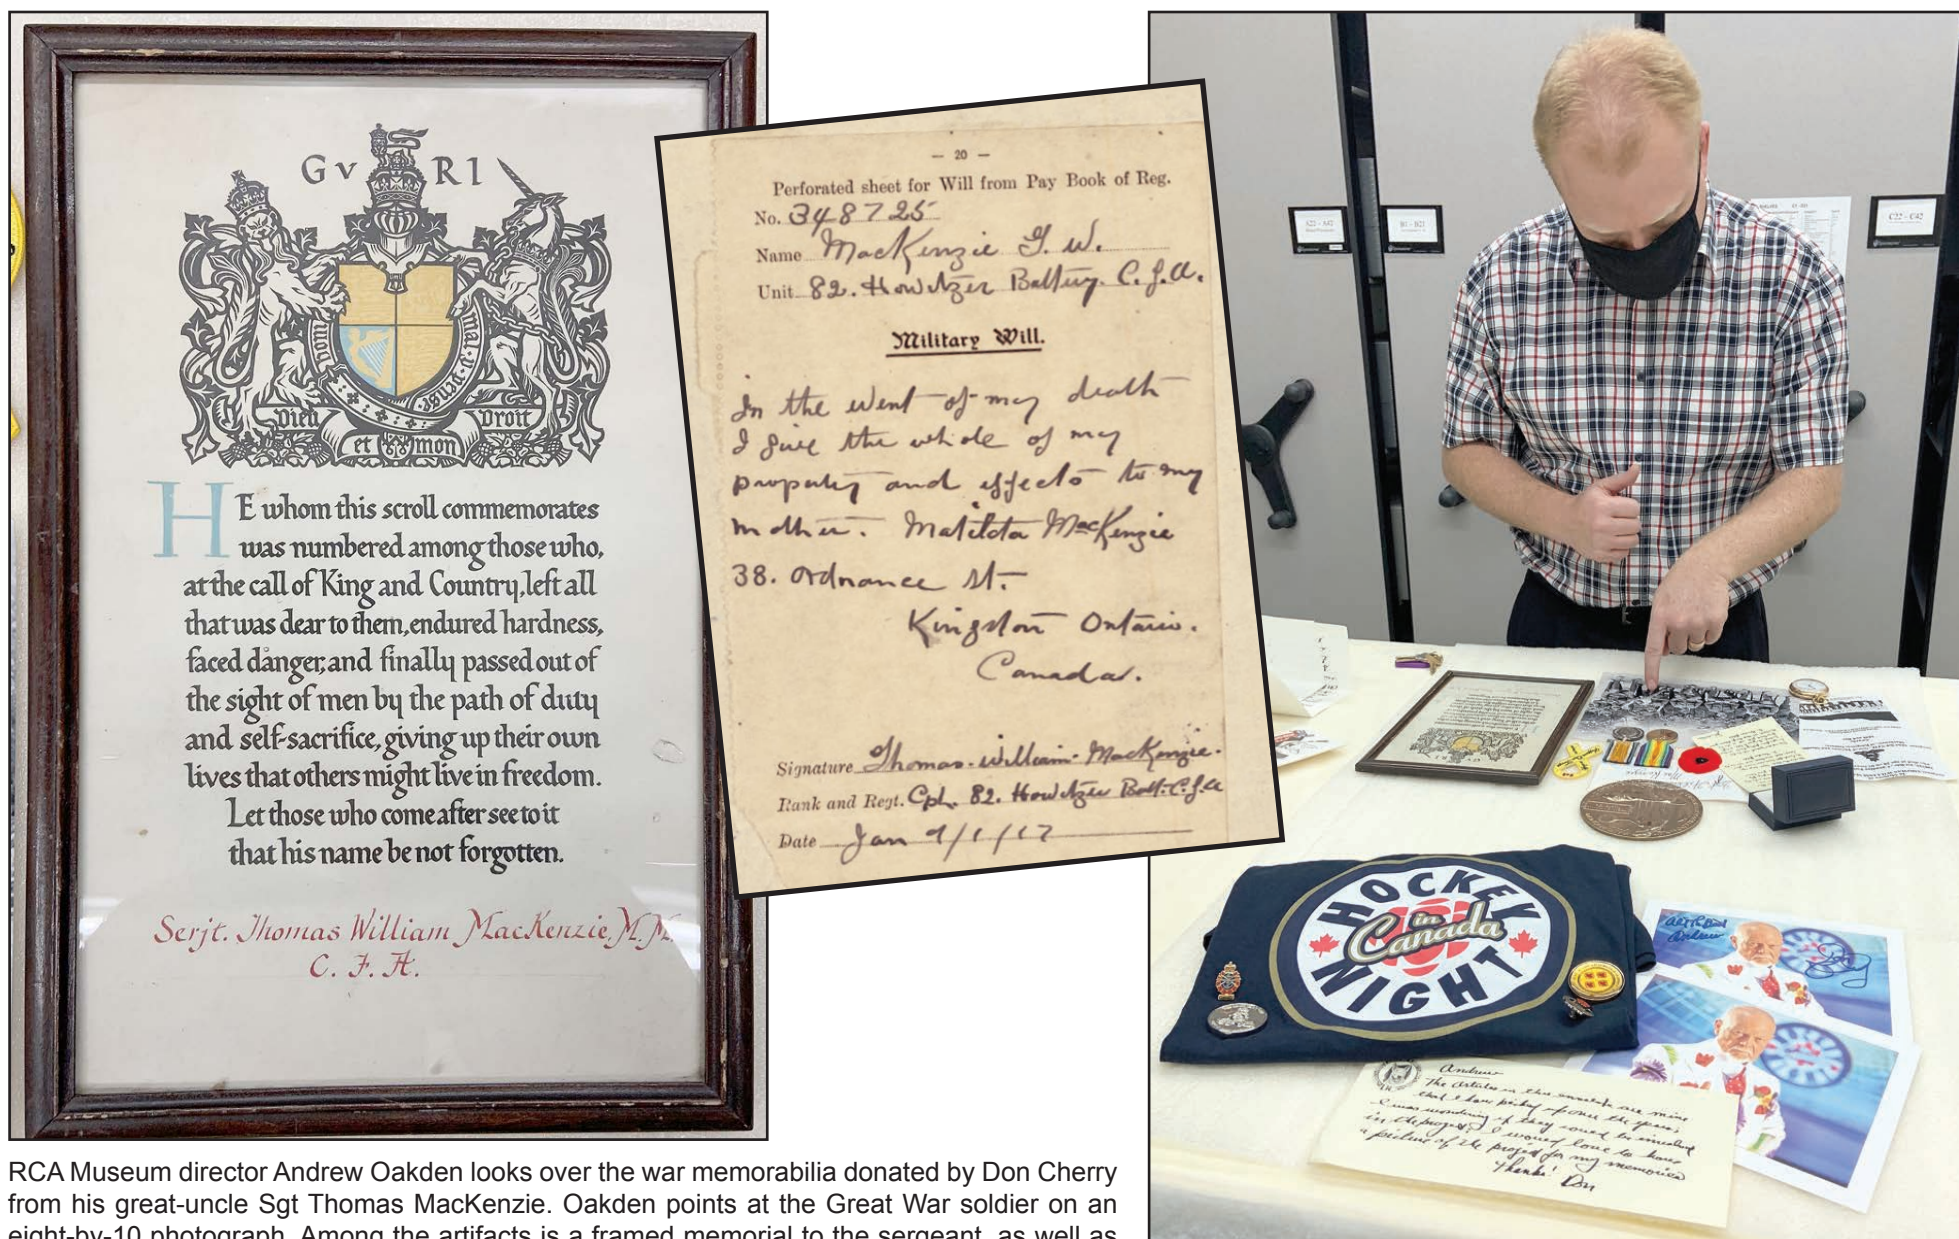 GV RI
Dieu et mon Droit
HE whom this scroll commemorates
was numbered among those who,
at the call of King and Country, left all
that was dear to them, endured hardness,
faced danger, and finally passed out of
the sight of men by the path of duty
and self-sacrifice, giving up their own
lives that others might live in freedom.
Let those who come after see to it
that his name be not forgotten.
Serjt. Thomas William MacKenzie, M.M.
C. F. A.
— 20 —
Perforated sheet for Will from Pay Book of Reg.
No. 348725
Name MacKenzie T. W.
Unit 82. Howitzer Battery. C.F.A.
Military Will.
In the event of my death
I give the whole of my
property and effects to my
mother. Matilda MacKenzie
38. Ordnance St.
Kingston Ontario.
Canada.
Signature Thomas-William-MacKenzie.
Rank and Regt. Cpl. 82. Howitzer Batt. C.F.A
Date Jan 9/1/17
A22 - A42
B1 - B21
C22 - C42
HOCKEY
in
Canada
NIGHT
All the Best
Andrew
Andrew
The articles in this envelope are mine
that I have picked up over the years
I was wondering if they could be included
in the project I would love to have
a picture of the project for my memories
Thanks! Don
RCA Museum director Andrew Oakden looks over the war memorabilia donated by Don Cherry
from his great-uncle Sgt Thomas MacKenzie. Oakden points at the Great War soldier on an
eight-by-10 photograph. Among the artifacts is a framed memorial to the sergeant, as well as